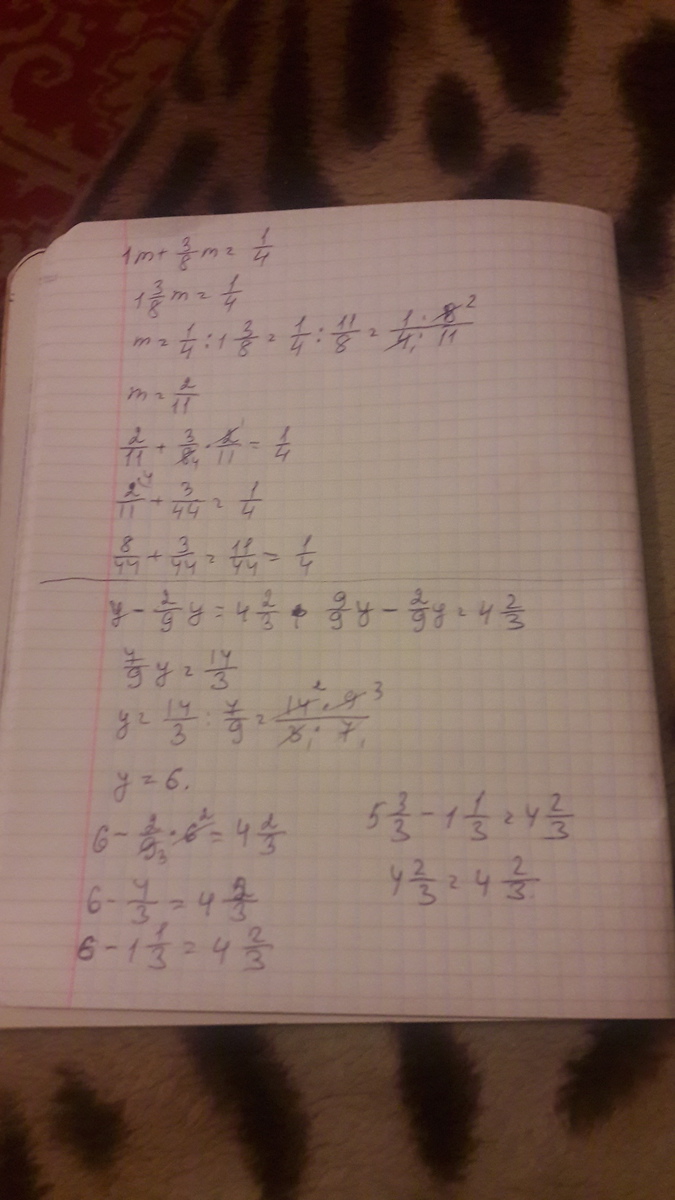 1m + 3/8 m = 1/4
1 3/8 m = 1/4
m = 1/4 : 1 3/8 = 1/4 : 11/8 = 1 · 8 2 / 4 1 · 11
m = 2/11
2/11 + 3/8 4 · 2 1/11 = 1/4
2 4/11 + 3/44 = 1/4
8/44 + 3/44 = 11/44 = 1/4
y - 2/9 y = 4 2/3 · 9/9 y - 2/9 y = 4 2/3
7/9 y = 14/3
y = 14/3 : 7/9 = 14 2 · 9 3 / 3 1 · 7 1
y = 6.
6 - 2/9 3 · 6 2 = 4 2/3
6 - 4/3 = 4 2/3
6 - 1 1/3 = 4 2/3
5 3/3 - 1 1/3 = 4 2/3
4 2/3 = 4 2/3